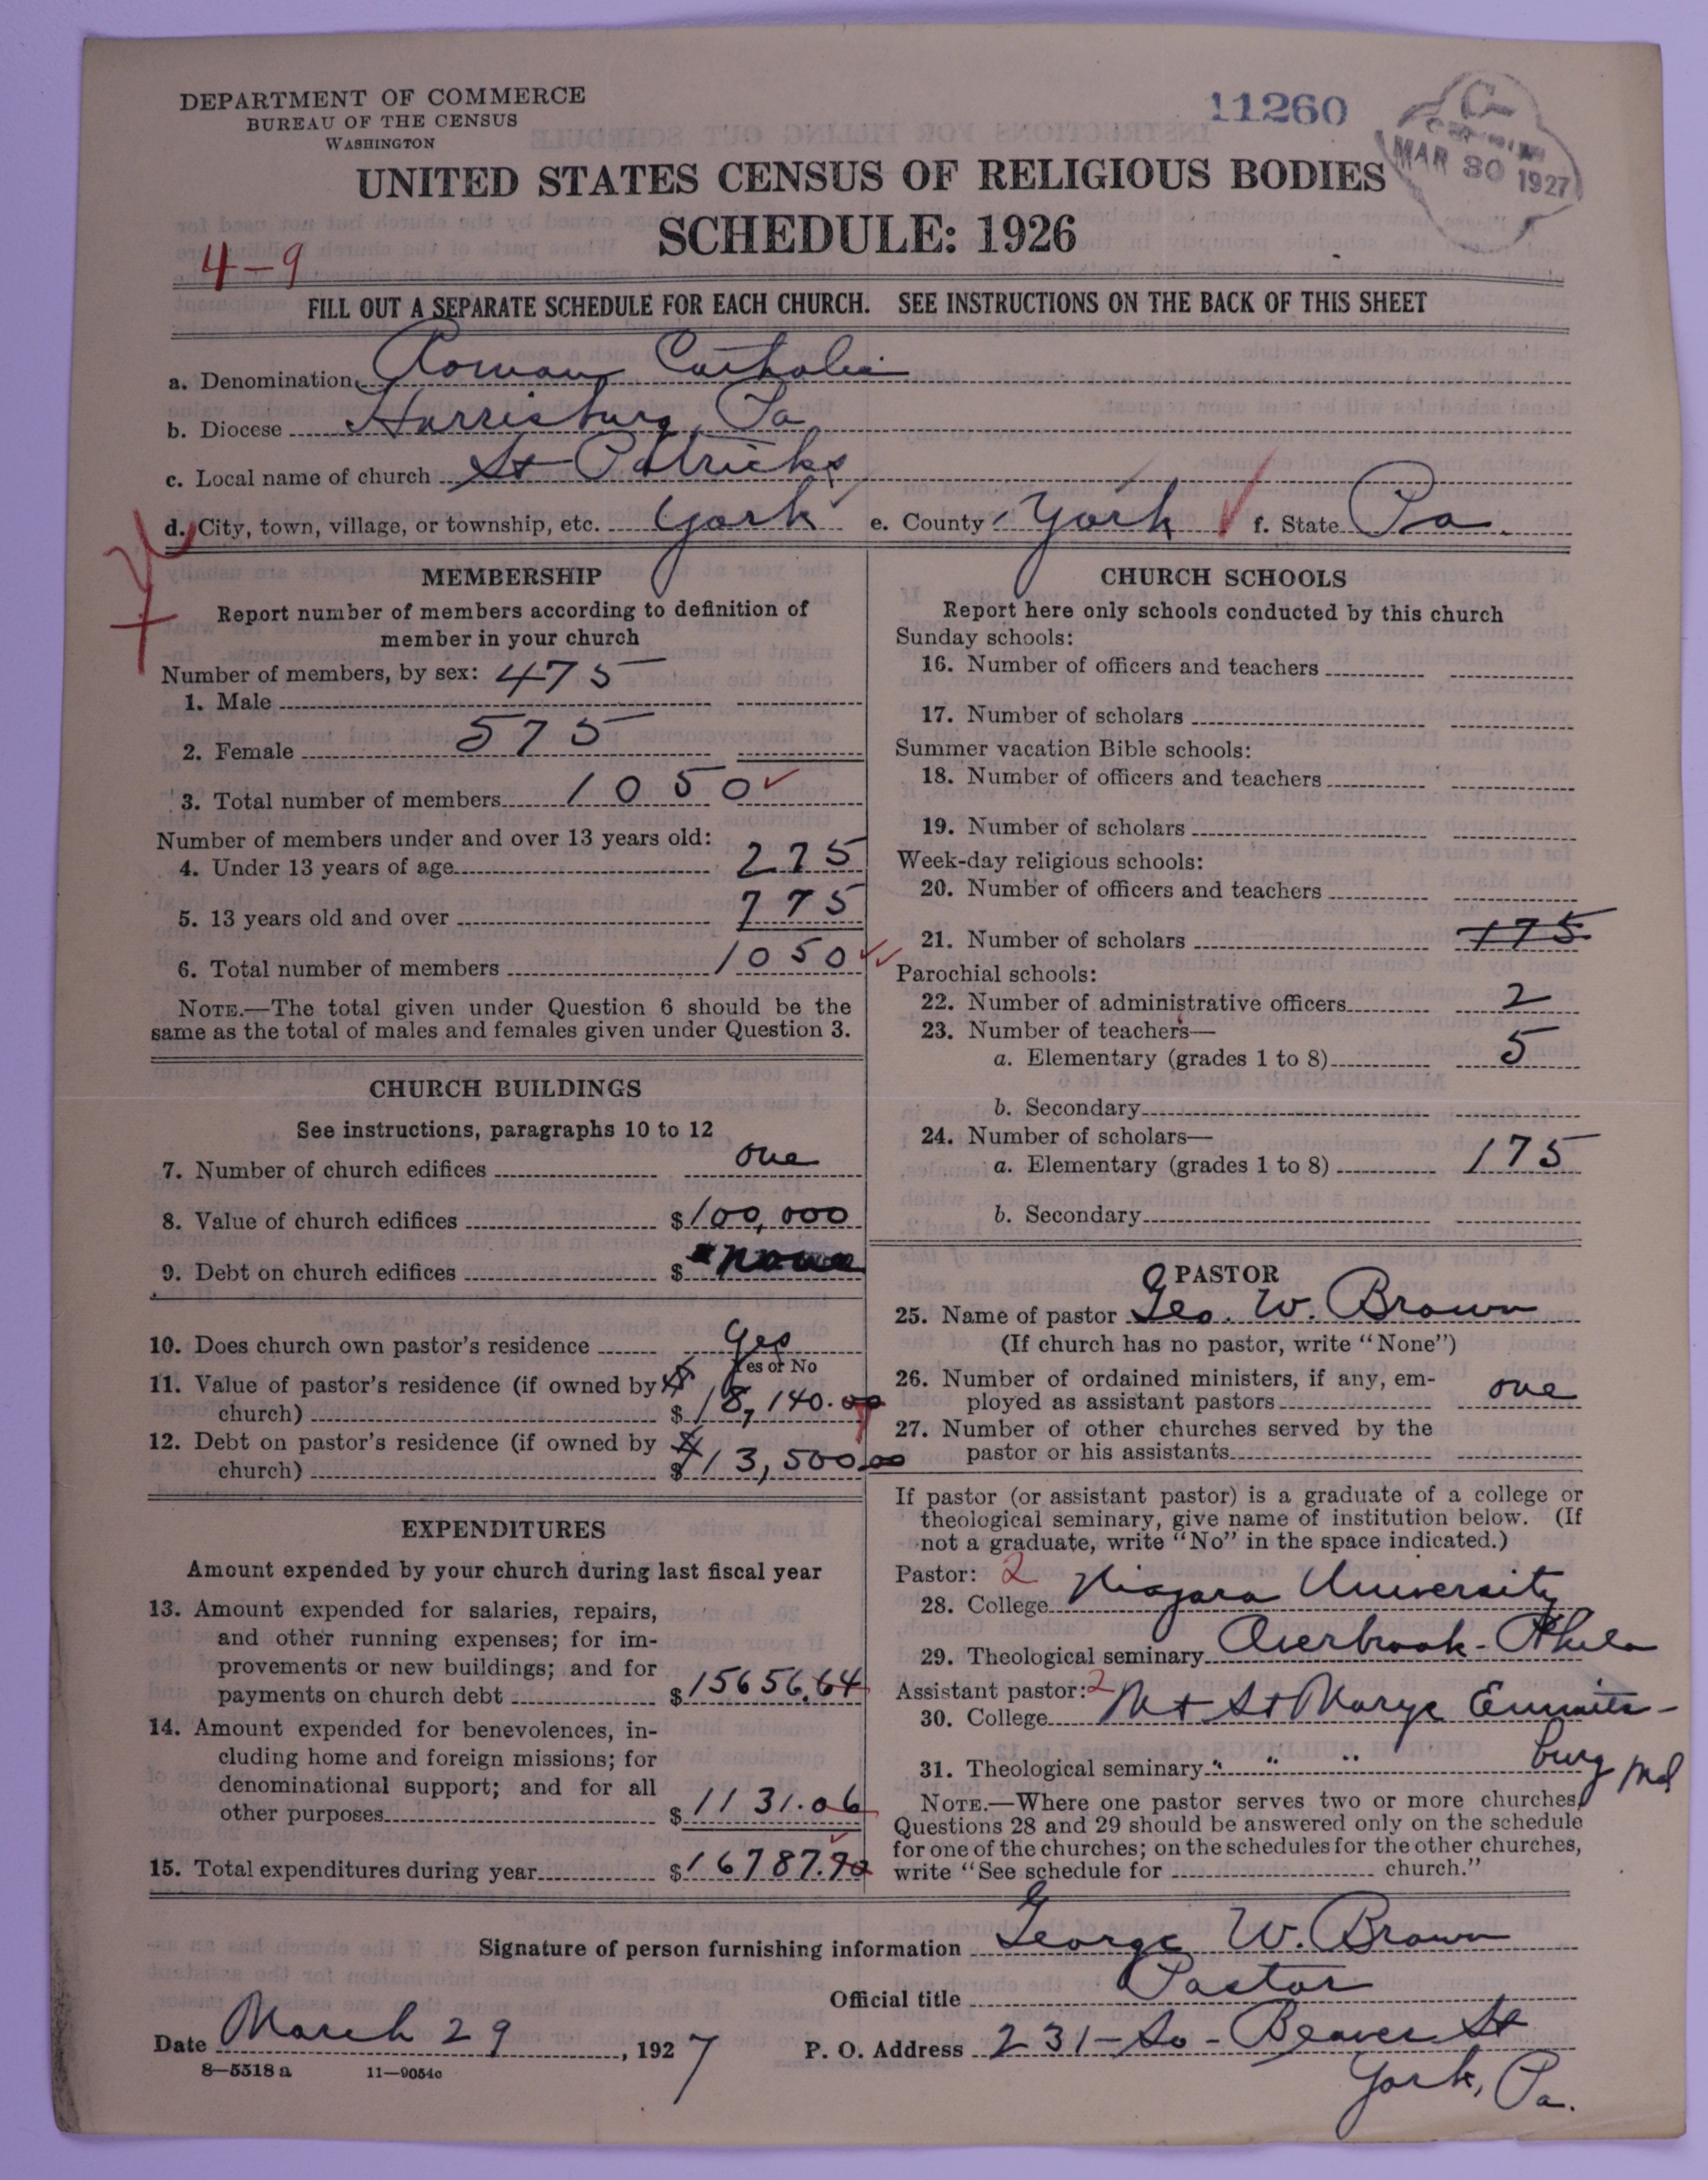 DEPARTMENT OF COMMERCE
BUREAU OF THE CENSUS
WASHINGTON
11260
MAR 30 1927
UNITED STATES CENSUS OF RELIGIOUS BODIES
SCHEDULE: 1926
4-9
FILL OUT A SEPARATE SCHEDULE FOR EACH CHURCH. SEE INSTRUCTIONS ON THE BACK OF THIS SHEET
a. Denomination Roman Catholic
b. Diocese Harrisburg, Pa
c. Local name of church St Patricks
d. City, town, village, or township, etc. York e. County York f. State Pa.
MEMBERSHIP
Report number of members according to definition of
member in your church
Number of members, by sex: 475
1. Male
2. Female 575
3. Total number of members 1050
Number of members under and over 13 years old:
4. Under 13 years of age 275
5. 13 years old and over 775
6. Total number of members 1050
NOTE.—The total given under Question 6 should be the
same as the total of males and females given under Question 3.
CHURCH BUILDINGS
See instructions, paragraphs 10 to 12
7. Number of church edifices one
8. Value of church edifices $100,000
9. Debt on church edifices $ none
10. Does church own pastor's residence Yes
Yes or No
11. Value of pastor's residence (if owned by $
church) $18,140.00
12. Debt on pastor's residence (if owned by $
church) $13,500.00
EXPENDITURES
Amount expended by your church during last fiscal year
13. Amount expended for salaries, repairs,
and other running expenses; for im-
provements or new buildings; and for
payments on church debt $15656.64
14. Amount expended for benevolences, in-
cluding home and foreign missions; for
denominational support; and for all
other purposes $1131.06
15. Total expenditures during year $16787.70
CHURCH SCHOOLS
Report here only schools conducted by this church
Sunday schools:
16. Number of officers and teachers
17. Number of scholars
Summer vacation Bible schools:
18. Number of officers and teachers
19. Number of scholars
Week-day religious schools:
20. Number of officers and teachers
21. Number of scholars 175
Parochial schools:
22. Number of administrative officers 2
23. Number of teachers—
a. Elementary (grades 1 to 8) 5
b. Secondary
24. Number of scholars—
a. Elementary (grades 1 to 8) 175
b. Secondary
PASTOR
25. Name of pastor Geo. W. Brown
(If church has no pastor, write "None")
26. Number of ordained ministers, if any, em-
ployed as assistant pastors one
27. Number of other churches served by the
pastor or his assistants
If pastor (or assistant pastor) is a graduate of a college or
theological seminary, give name of institution below. (If
not a graduate, write "No" in the space indicated.)
Pastor: 2
28. College Niagara University
29. Theological seminary Overbrook - Phila
Assistant pastor: 2
30. College Mt St Marys Emmits-
31. Theological seminary " " " burg Md
NOTE.—Where one pastor serves two or more churches,
Questions 28 and 29 should be answered only on the schedule
for one of the churches; on the schedules for the other churches,
write "See schedule for church."
Signature of person furnishing information George W. Brown
Official title Pastor
Date March 29, 1927 P. O. Address 231-So-Beaver St
York, Pa.
8—5518 a 11—9054c